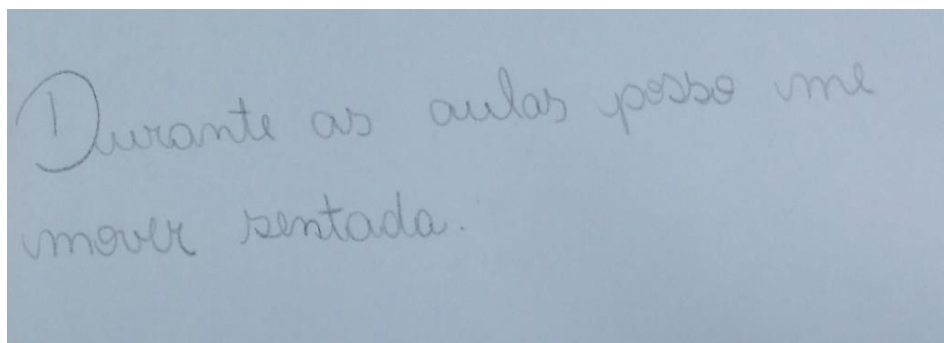 Durante as aulas posso me
mover sentada.